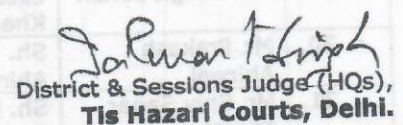 District & Sessions Judge (HQs),
Tis Hazari Courts, Delhi.